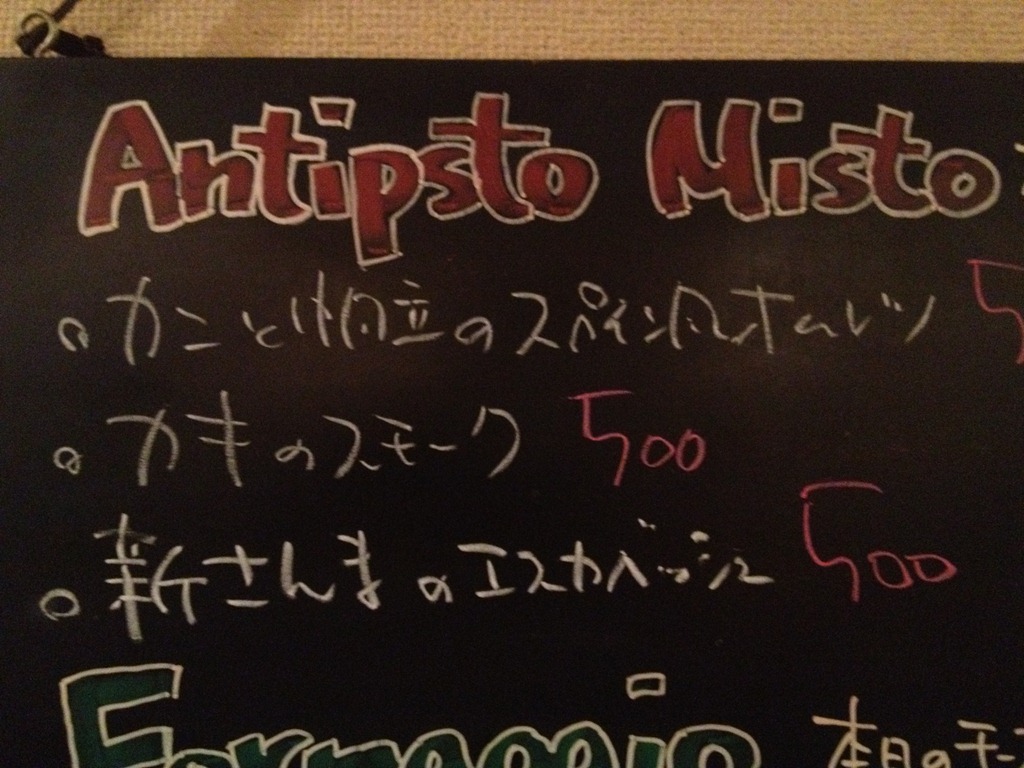 Antipsto Misto
。カニと帆立のスペイン風オムレツ
。カキのスモーク 500
。新さんまのエスカベッシュ 500
Formaggio 本日のモ